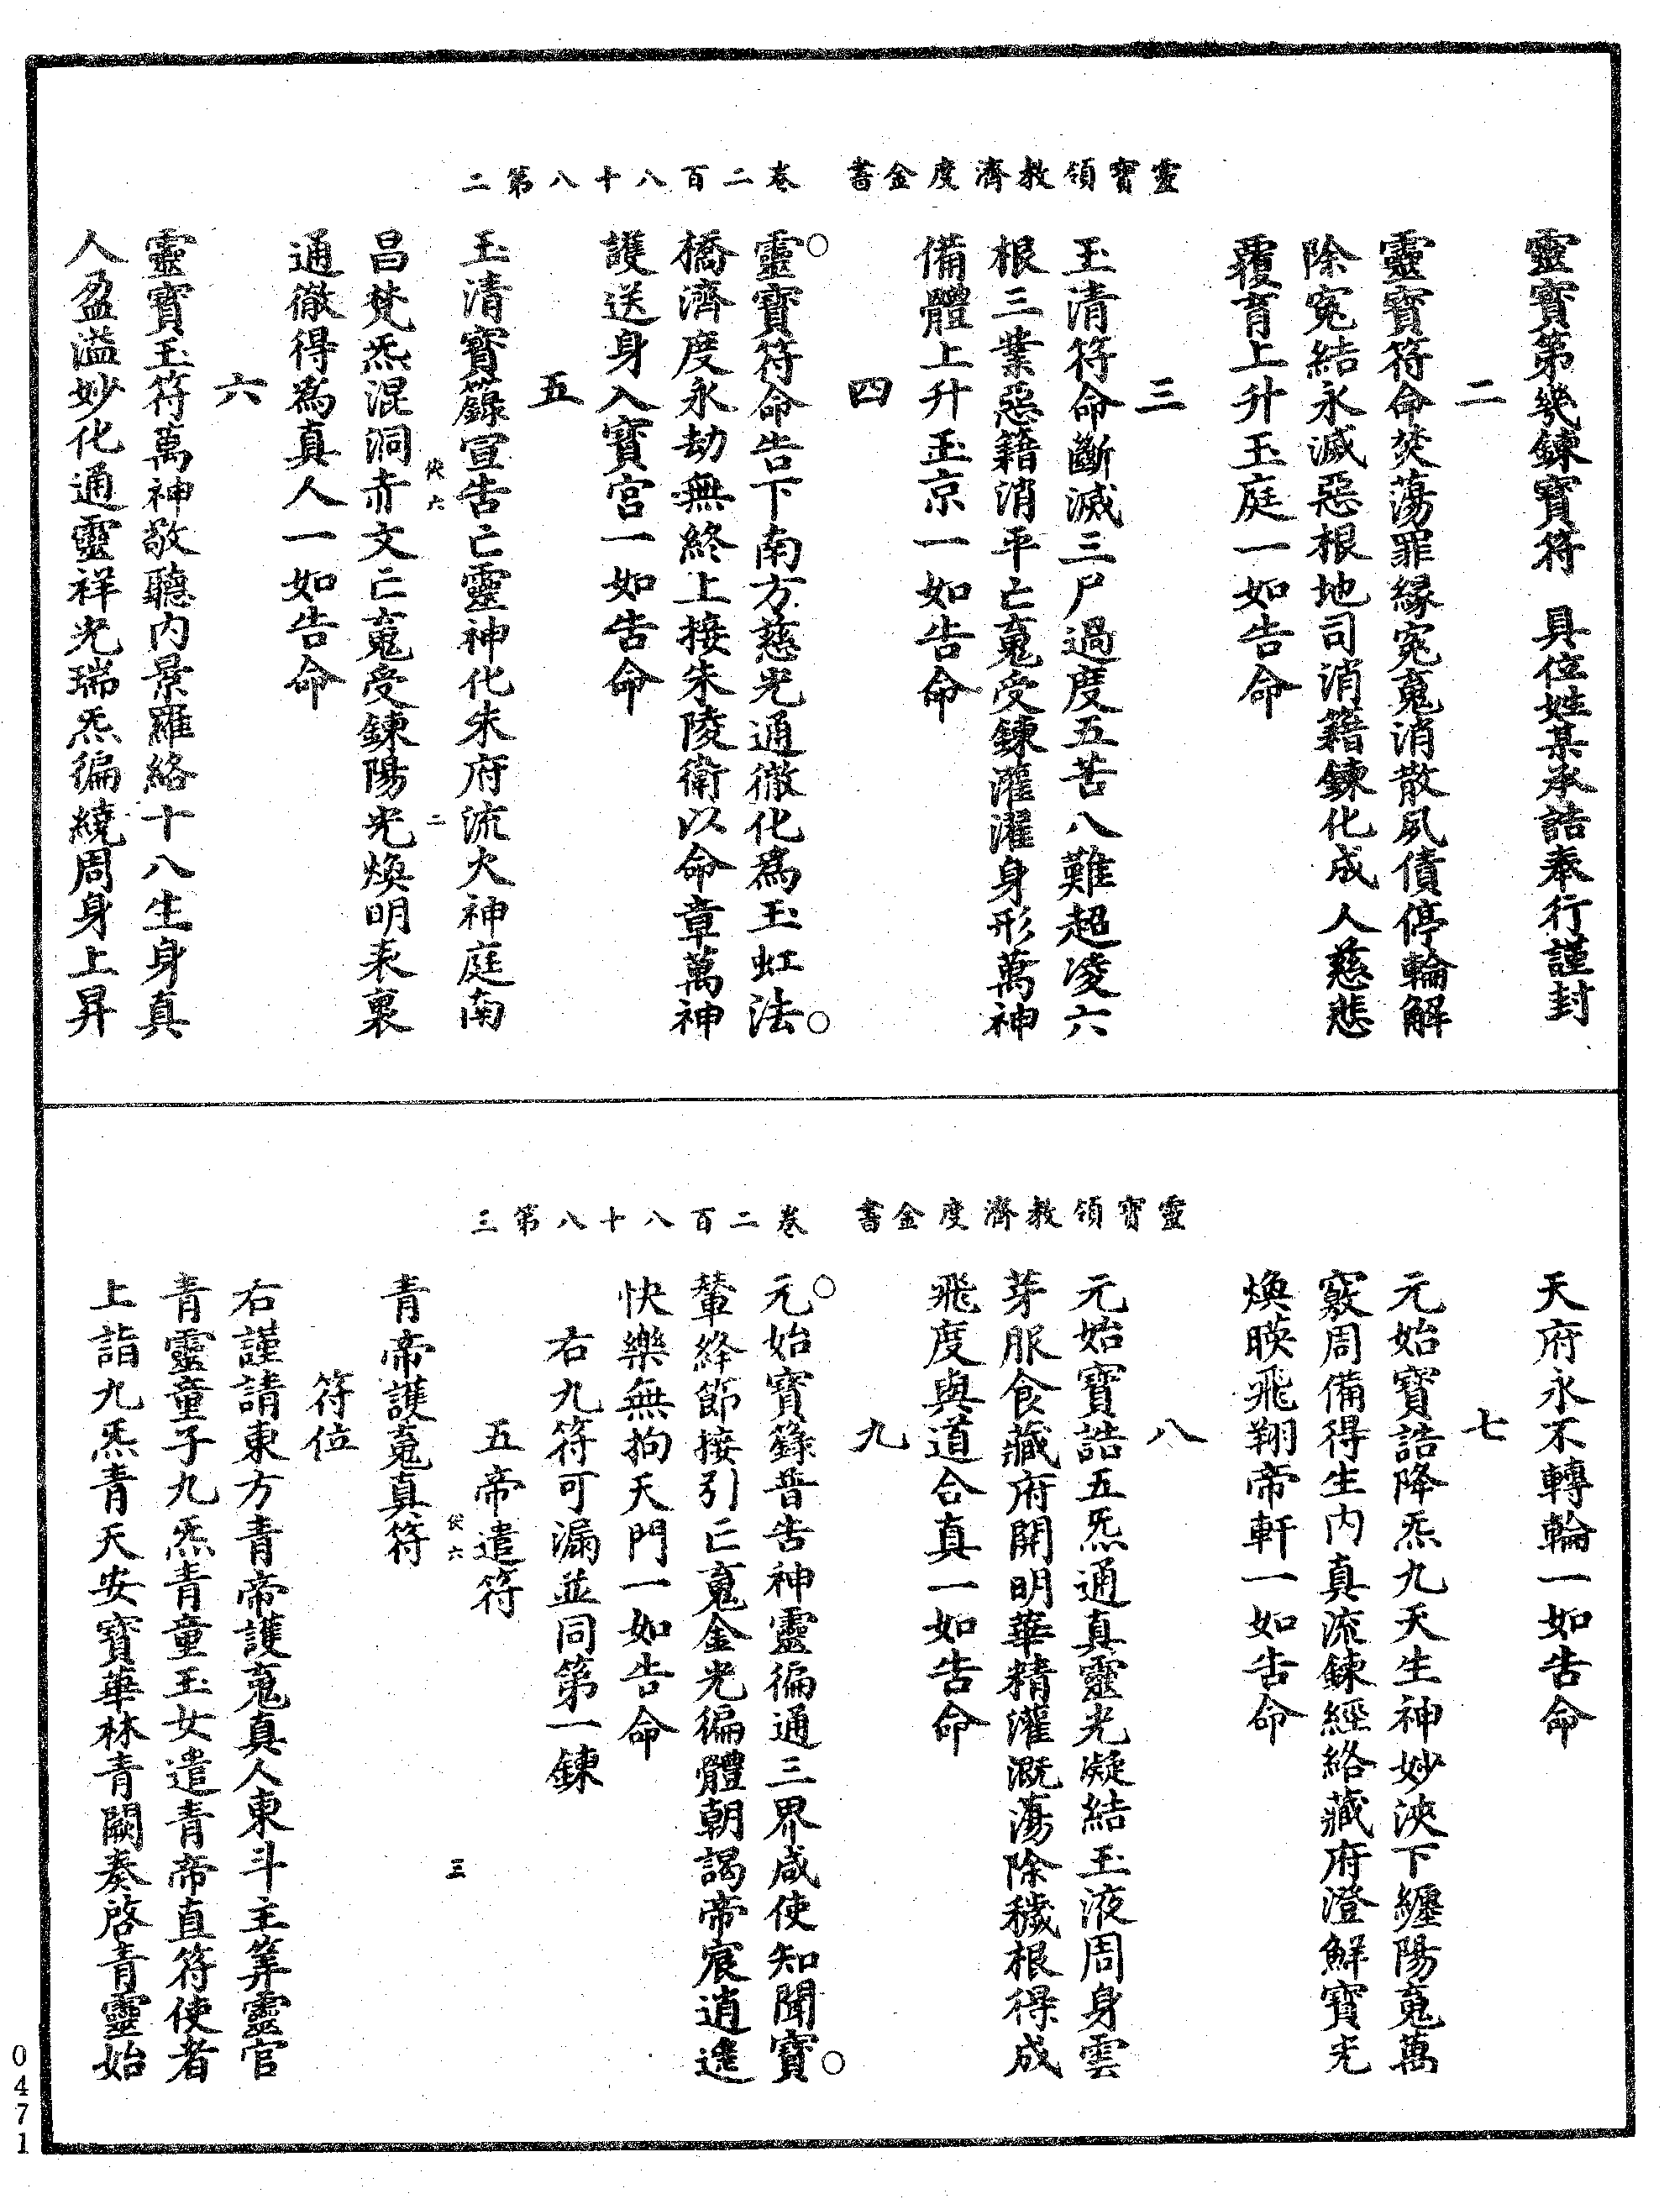 靈寶領教濟度金書　卷二百八十八第二
靈寶第幾鍊寶符　具位姓某承誥奉行謹封
二
靈寶符命焚蕩罪緣冤䰟消散夙債停輪解
除冤結永滅惡根地司消籍鍊化成人慈悲
覆育上升玉庭一如告命
三
玉清符命斷滅三尸過度五苦八難超凌六
根三業惡籍消平亡䰟受鍊灌濯身形萬神
備體上升玉京一如告命
四
靈寶符命告下南方慈光通徹化為玉虹法
橋濟度永劫無終上接朱陵衛以命章萬神
護送身入寶宮一如告命
五
玉清寶籙宣告亡靈神化朱府流火神庭南
昌梵炁混洞赤文亡䰟受鍊陽光煥明表裏
俠六　二
通徹得為真人一如告命
六
靈寶玉符萬神敬聽內景羅絡十八生身真
人盈溢妙化通靈祥光瑞炁徧繞周身上昇
靈寶領教濟度金書　卷二百八十八第三
天府永不轉輪一如告命
七
元始寶誥降炁九天生神妙浹下纏陽䰟萬
竅周備得生內真流鍊經絡藏府澄鮮寶光
煥暎飛翔帝軒一如告命
八
元始寶誥五炁通真靈光凝結玉液周身雲
芽服食藏府開明華精灌溉蕩除穢根得成
飛度與道合真一如告命
九
元始寶籙普告神靈徧通三界咸使知聞寶
輦絳節接引亡䰟金光徧體朝謁帝宸逍遙
快樂無拘天門一如告命
右九符可漏並同第一鍊
五帝遣符
俠六　三
青帝護䰟真符
符位
右謹請東方青帝護䰟真人東斗主筭靈官
青靈童子九炁青童玉女遣青帝直符使者
上詣九炁青天安寶華林青闕奏啓青靈始
0471